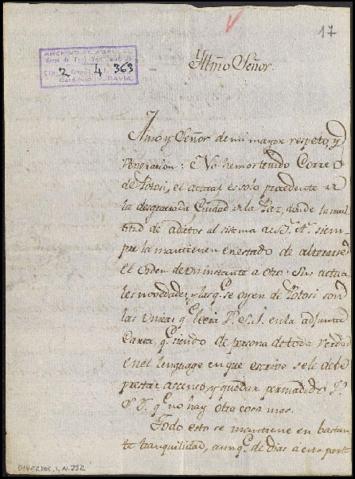 17
2 4 363
Yltmo Señor.
Amo y Señor de mi mayor respeto y
Veneracion: No hemos tenido Correo
de Potosi, el actual es solo procedente de
la desgraciada Ciudad de la Paz, donde la mul
titud de adictos al sistema de siem
pre la mantienen en estado de alterarse
el orden de un instante a otro. Sus actua
les novedades, y las qe. se oyen de Potosi son
las Unicas qe. leera V.S.I. en la adjunta
Carta, qe. siendo de persona de toda verdad
en el lenguage en que escribe se le debe
prestar ascenso, y quedar persuadido
qe. no hay otra cosa mas.
Todo esto se mantiene en bastan
te tranquilidad, aunqe. de dias a esta parte
DIVERSOS, 2, N.